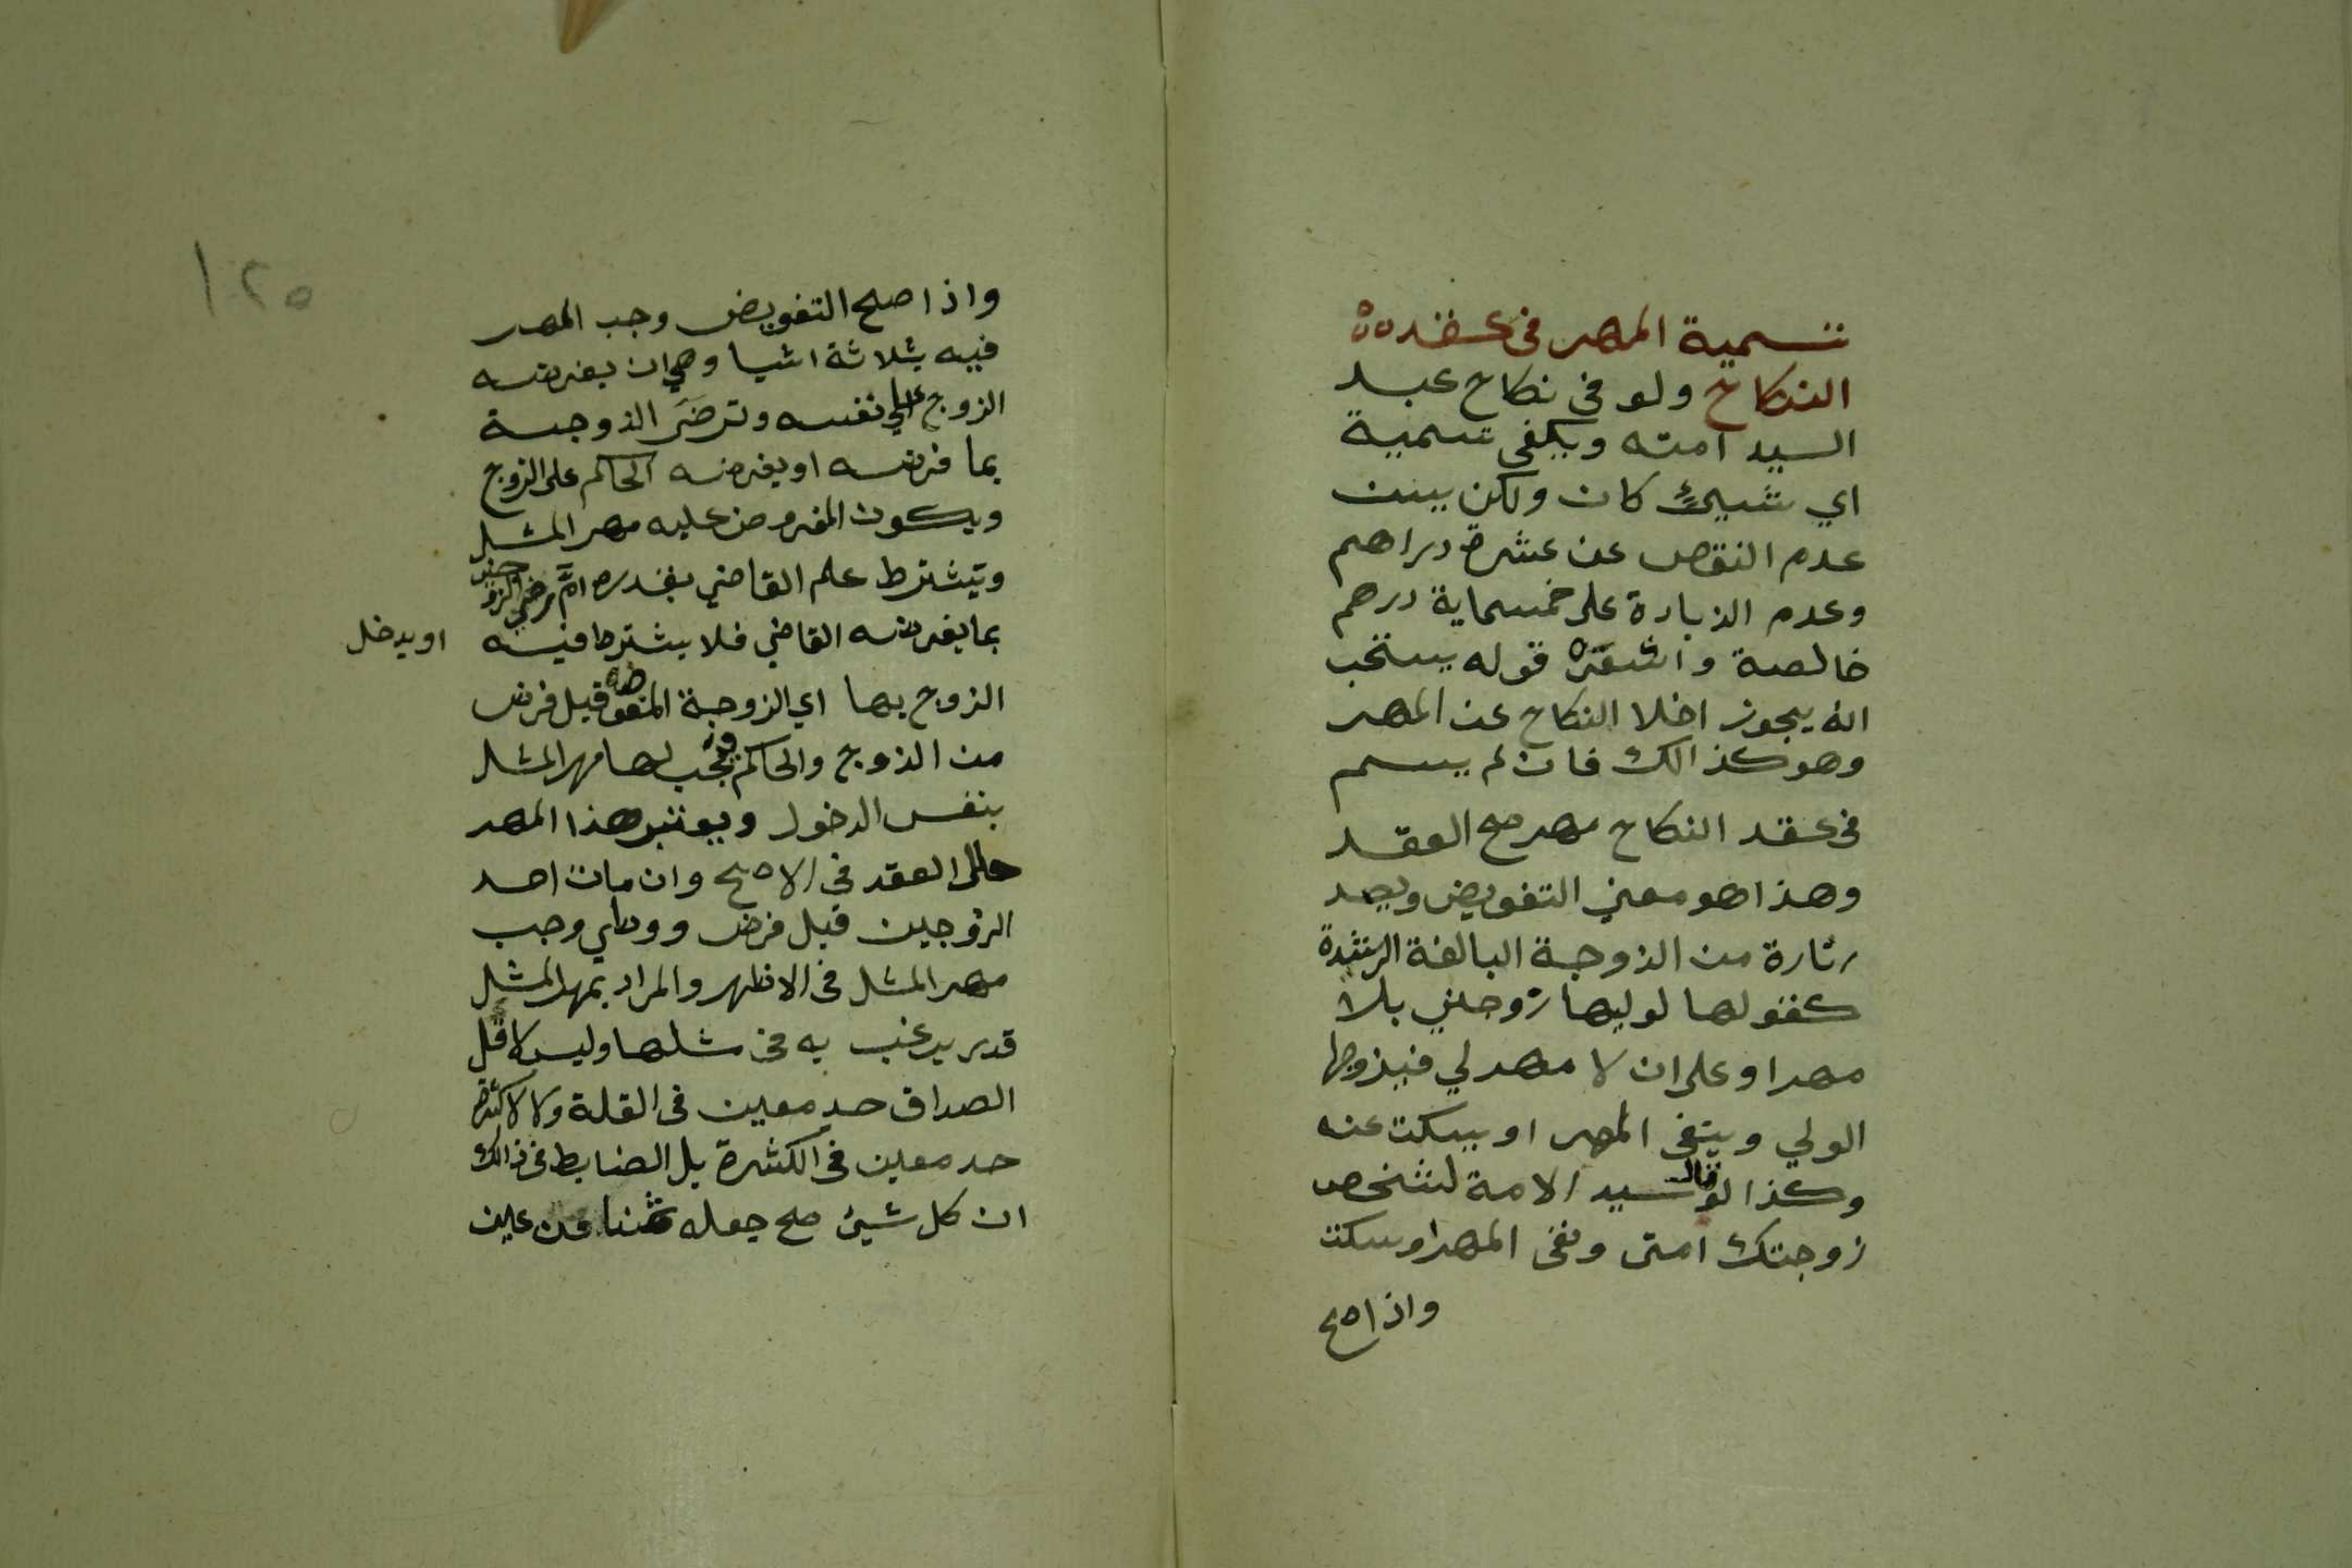 تسمية المهر في عقده
النكاح ولو في نكاح عبد
السيد امته ويكفي تسمية
اي شيئ كان ولكن يسن
عدم النقص عن عشرة دراهم
وعدم الزيادة على خمسماية درهم
خالصة واشعر قوله يستحب
انه يجوز اخلا النكاح عن المهر
وهو كذالك فان لم يسم
في عقد النكاح مهر صح العقد
وهذا هو معني التفويض ويصد
رتارة من الزوجة البالغة الرشيدة
كقولها لوليها زوجني بلا
مهر او على ان لا مهر لي فيزوجها
الولي وينفى المهر او يسكت عنه
وكذا لو قال سيد الامة لشخص
زوجتك امتى ونفى المهر او سكت
واذا صح
١٢٥
واذا صح التفويض وجب المهر
فيه بثلاثة اشيا وهي ان يفرضه
الزوج علي نفسه وترضَى الزوجة
بما فرضه او يفرضه الحاكم على الزوج
ويكون المفروض عليه مهر المثل
ويشترط علم القاضي بقدره امَّا رضي الزوجين
بما يفرضه القاضي فلا يشترط فيه او يدخل
الزوج بها اي الزوجة المفوضه قبل فرض
من الزوج والحاكم فيجب لها مهر المثل
بنفس الدخول ويعتبر هذا المهر
حال العقد في الاصح وان مات احد
الزوجين قبل فرض ووطي وجب
مهر المثل في الاظهر والمراد بمهر المثل
قدر يرغب به في مثلها وليس لاقل
الصداق حد معين في القلة ولا لاكثره
حد معين في الكثرة بل الضابط في ذالك
ان كل شيئ صح جعله ثمنا من عين